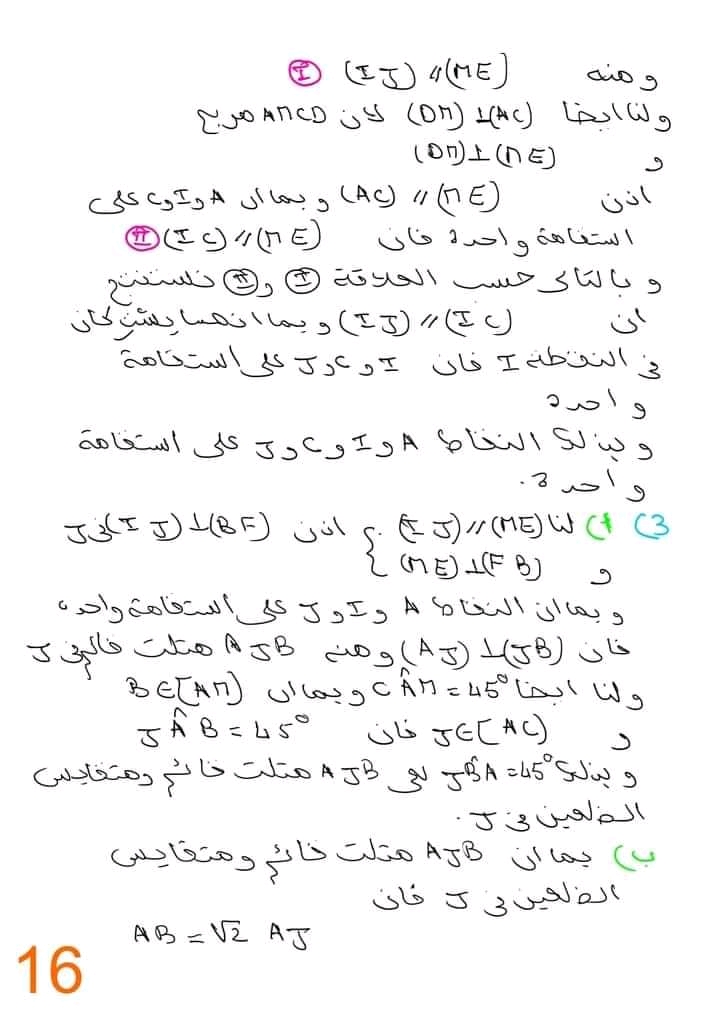 ومنه (IJ) // (ME) Ⓘ
ولنا ايضا (DM) ⊥ (AC) لان AMCD مربع
و (DM) ⊥ (ME)
اذن (AC) // (ME) و بما ان A و I و C على
استقامة واحدة فان (IC) // (ME) Ⅱ
و بالتالي حسب العلاقة Ⓘ و Ⅱ نستنتج
ان (IJ) // (IC) و بما انهما يشتركان
في النقطة I فان I و C و J على استقامة
واحدة
وبذلك النقاط A و I و C و J على استقامة
واحدة.
3) أ) لنا { (IJ) // (ME) اذن (IJ) ⊥ (BF) في J
و (ME) ⊥ (FB)
و بما ان النقاط A و I و J على استقامة واحدة
فان (AJ) ⊥ (JB) ومنه AJB مثلث قائم في J
ولنا ايضا CÂM = 45° وبما ان B∈[AM)
و J∈[AC) فان JÂB = 45°
وبذلك JB̂A = 45° لهي AJB مثلث قائم ومتقايس
الضلعين في J.
ب) بما ان AJB مثلث قائم ومتقايس
الضلعين في J فان
AB = √2 AJ
16